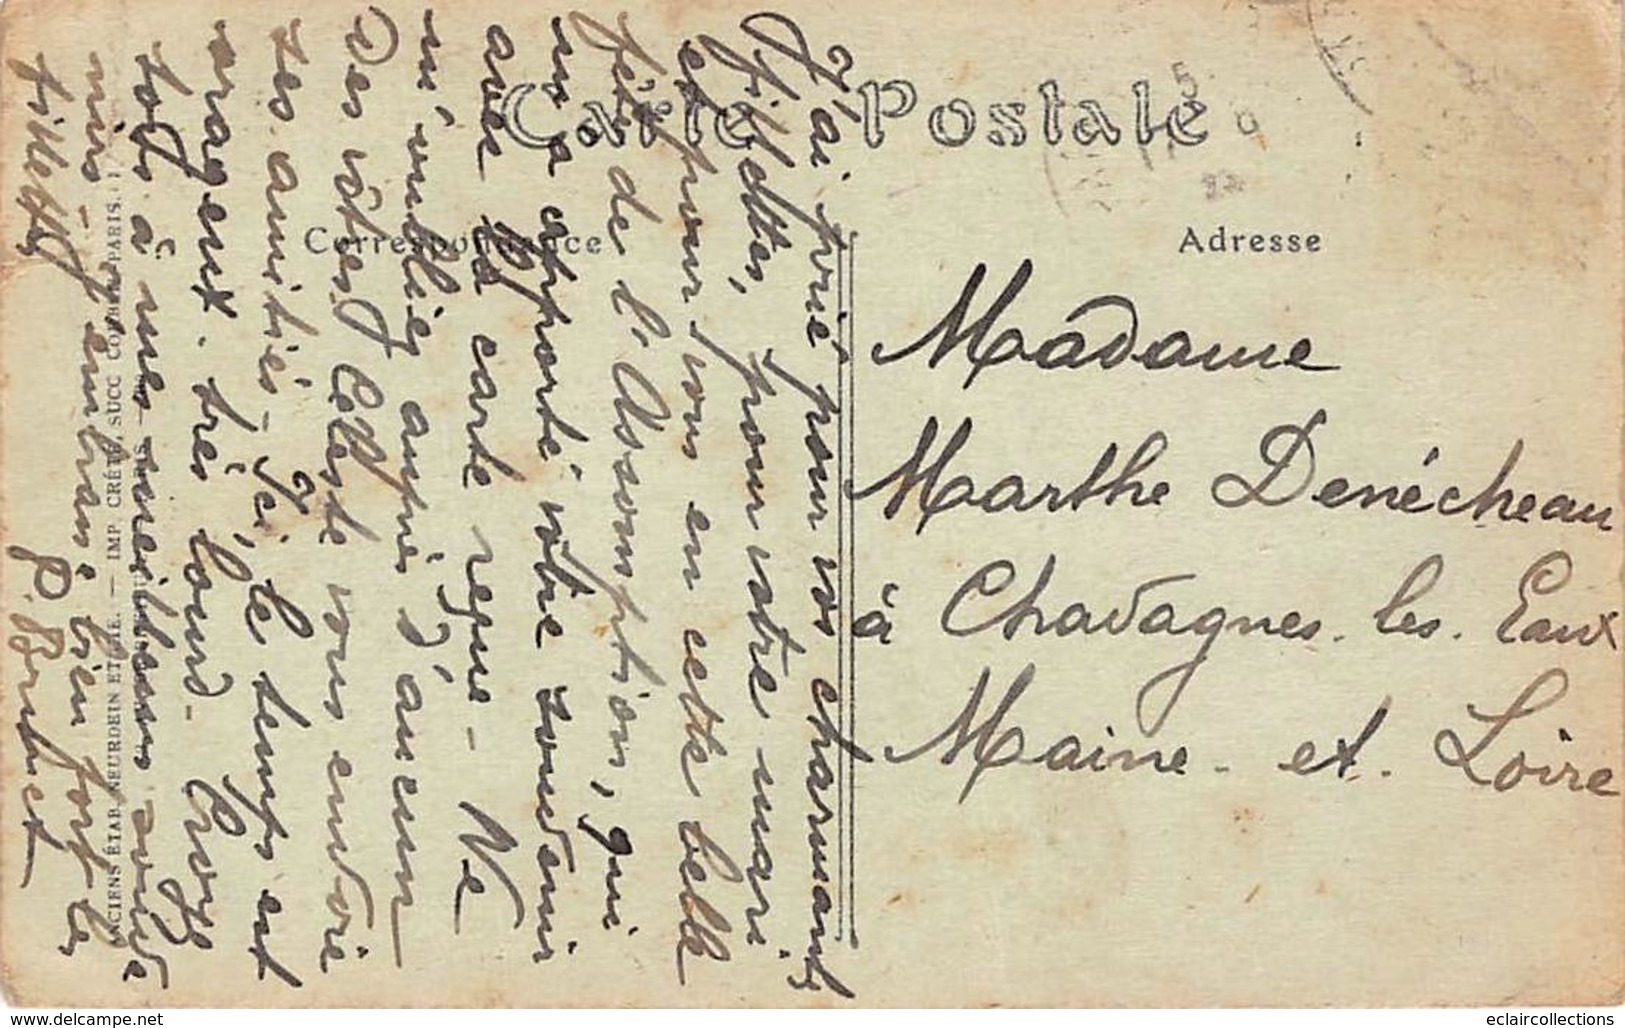 Carte Postale
Correspondance
Adresse
J'ai prié pour vos charmantes
fillettes, pour votre mari
et pour vous en cette belle
fête de l'Assomption, qui
m'a apporté votre souvenir
avec la carte reçue - Ne
m'oubliez auprès d'aucun
Des vôtres. Céleste vous envoie
ses amitiés - Ici, le temps est
orageux. très lourd - Croyez
tous à mes meilleurs souve
nirs - J'embrasse bien fort les
fillettes
Madame
Marthe Denécheau
à Chavagnes. les. Eaux
Maine - et. Loire
ANCIENS ÉTAB. NEURDEIN ET CIE. — IMP. CRÉTÉ, SUCC. CORBEIL PARIS.
www.delcampe.net
eclaircollections